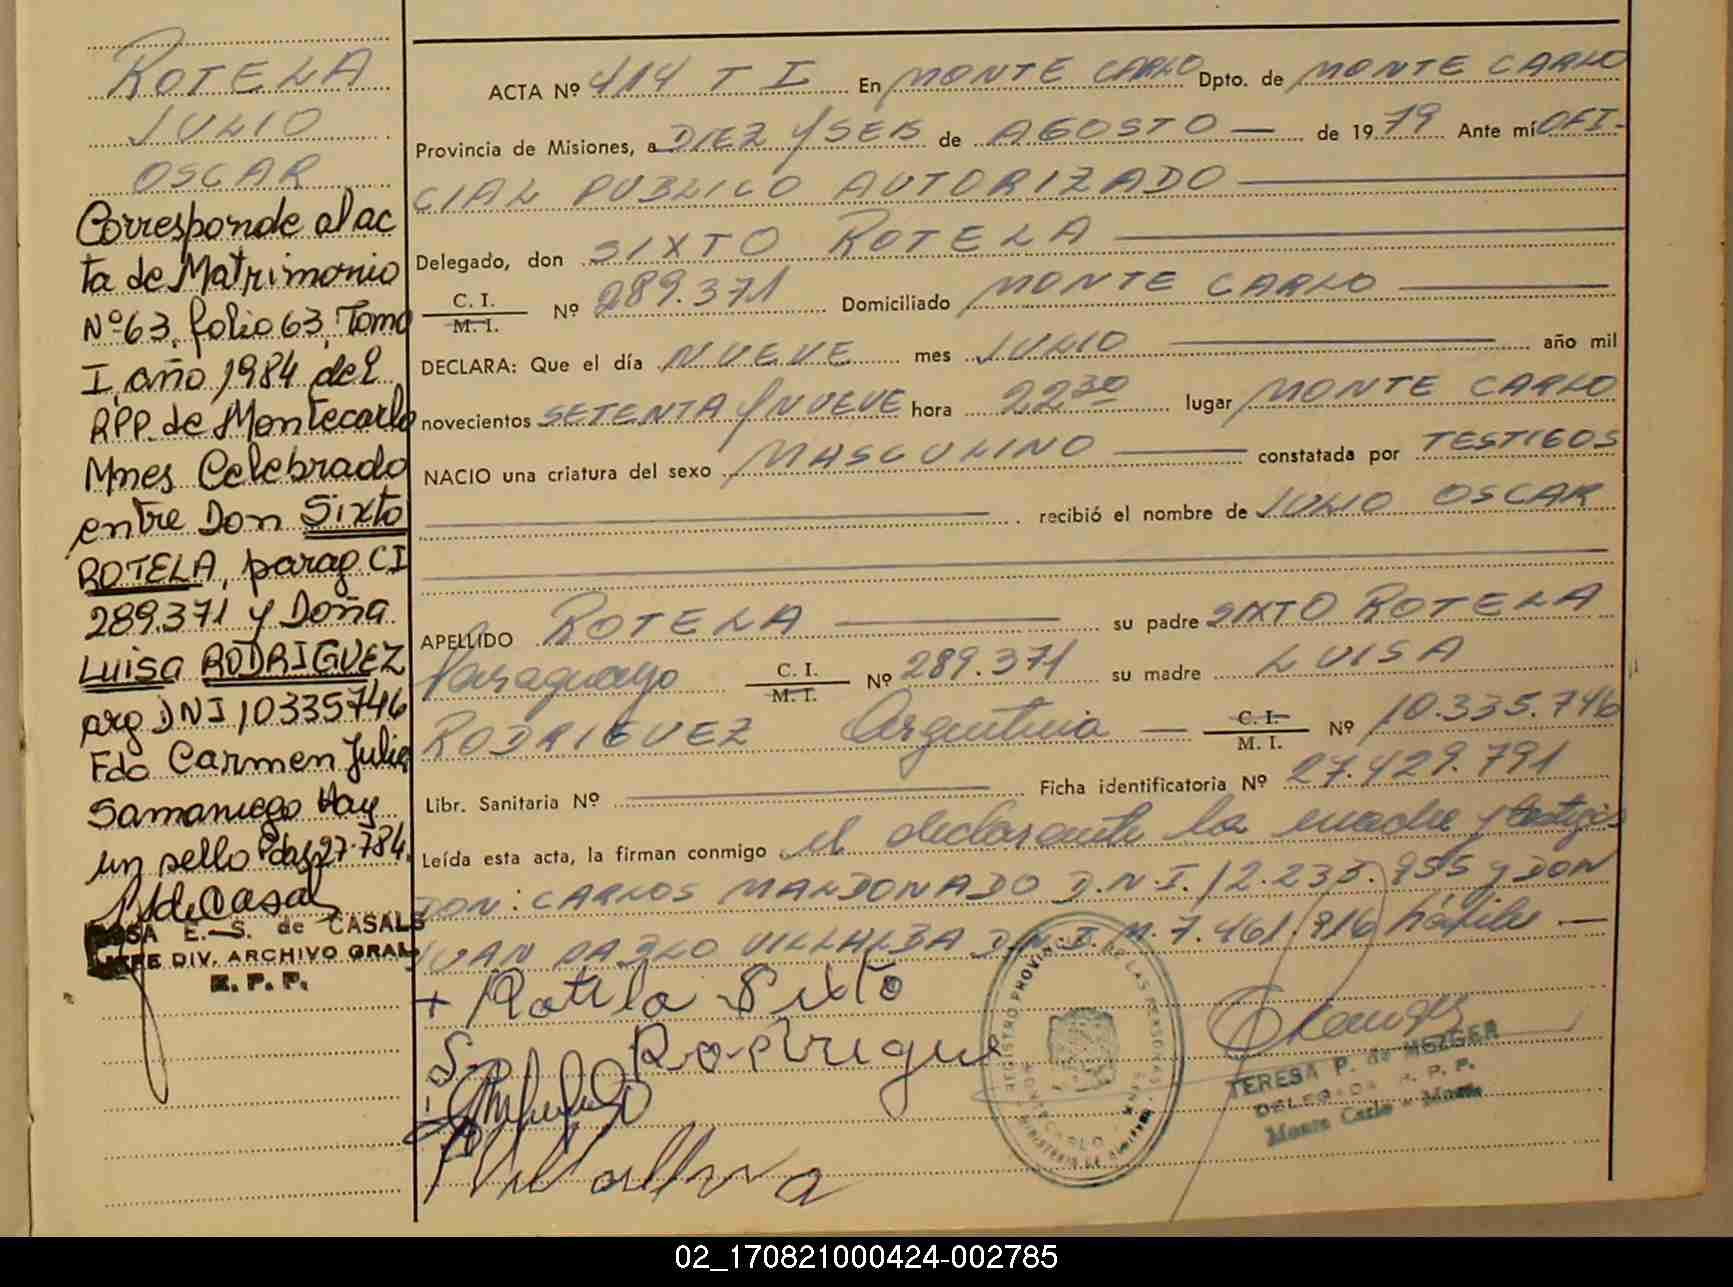 ROTELA
JULIO
OSCAR
Corresponde al ac
ta de Matrimonio
Nº 63, folio 63, Tomo
I, año 1984 del
RPP. de Montecarlo
Mnes Celebrado
entre Don Sixto
ROTELA, parag CI
289.371 y Doña
Luisa RODRIGUEZ
arg DNI 10335746
Fdo Carmen Julia
Samaniego Hay
un sello Pdas 27-784.
ROSA E. S. de CASALS
JEFE DIV. ARCHIVO GRAL
R. P. P.
ACTA Nº 414 T I En MONTE CARLO Dpto. de MONTE CARLO
Provincia de Misiones, a DIEZ Y SEIS de AGOSTO — de 1979 Ante mí OFI-
CIAL PUBLICO AUTORIZADO
Delegado, don SIXTO ROTELA
C. I. / M. I. Nº 289.371 Domiciliado MONTE CARLO
DECLARA: Que el día NUEVE mes JULIO año mil
novecientos SETENTA Y NUEVE hora 22 30 lugar MONTE CARLO
NACIO una criatura del sexo MASCULINO constatada por TESTIGOS
recibió el nombre de JULIO OSCAR
APELLIDO ROTELA su padre SIXTO ROTELA
Paraguayo C. I. / M. I. Nº 289.371 su madre LUISA
RODRIGUEZ Argentina — C. I. / M. I. Nº 10.335.746
Libr. Sanitaria Nº Ficha identificatoria Nº 27.429.791
Leída esta acta, la firman conmigo el declarante la madre y testigos
DON: CARLOS MALDONADO D.N.I. 12.233.955 y DON
JUAN PABLO VILLALBA D.N.I. M. 7.461.916 hábiles —
+ Rotela Sixto
Rodrigue
Villalva
REGISTRO PROVINCIAL DE LAS PERSONAS
MONTECARLO
MINISTERIO DE GOBIERNO
TERESA P. de MEZGER
DELEGADA R. P. P.
Monte Carlo - Mnes.
02_170821000424-002785